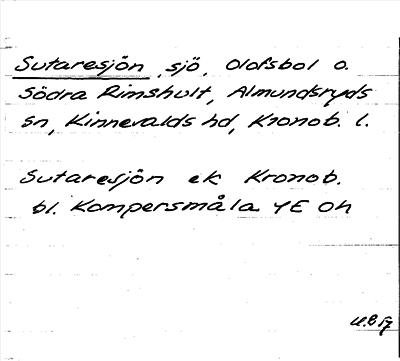 Sutaresjön, sjö, Olofsbol o.
Södra Rimshult, Almundsryds
sn, Kinnevalds hd, Kronob. l.
Sutaresjön ek Kronob.
bl. Kompersmåla 4E Oh
U.B 57